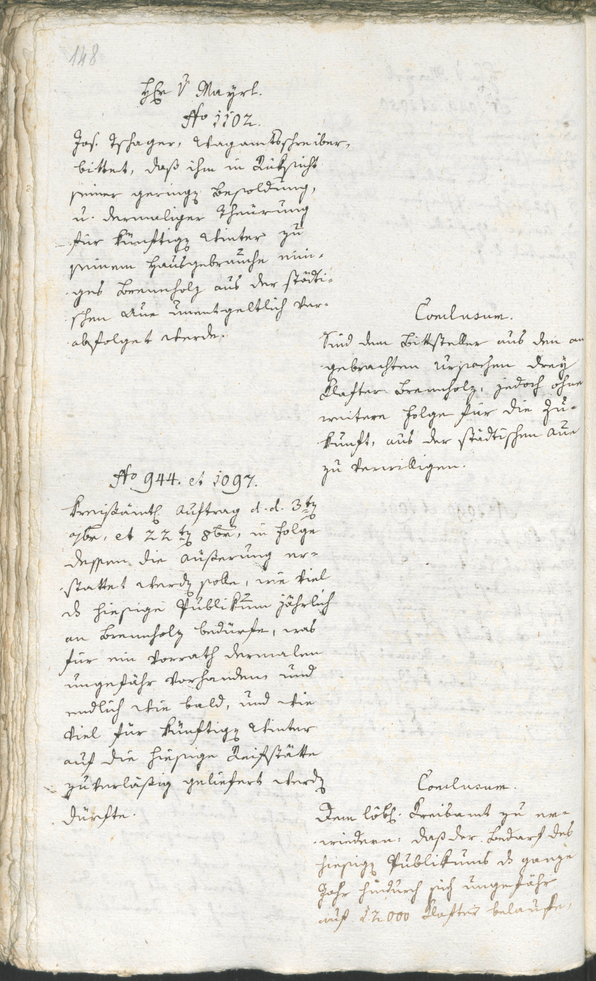 148
Hr. v Mayrl.
No 1102.
Jos. Tschager, Wagamtsschreiber,
bittet, daß ihm in Rüksicht
seiner geringen Besoldung,
u. dermaliger Theürung
für künftigen Winter zu
seinem Hausgebrauche eini-
ges Brennholz aus der städti-
schen Aue unentgeltlich ver-
abfolget werde.
Conclusum.
Sind dem Bittsteller aus den an
gebrachten Ursachen drey
Klafter Brennholz, jedoch ohne
weitere Folge für die Zu-
kunft, aus der städtischen Aue
zu verwilligen.
No 944. et 1097.
Kreisämtl. Auftrag d. d. 3ten
7br. et 22ten 8br., in Folge
dessen die Äußerung er-
stattet werden solle, wie viel
das hiesige Publikum jährlich
an Brennholz bedürfe, was
für ein Vorrath dermalen
ungefähr vorhanden: und
endlich wie bald, und wie
viel für künftigen Winter
auf die hiesige Reifstätte
zuverläßig geliefert werden
dürfte.
Conclusum.
Dem löbl. Kreisamt zu er-
wiedern: daß der Bedarf des
hiesigen Publikums das ganze
Jahr hindurch sich ungefähr
auf 12000 Klafter belaufe,